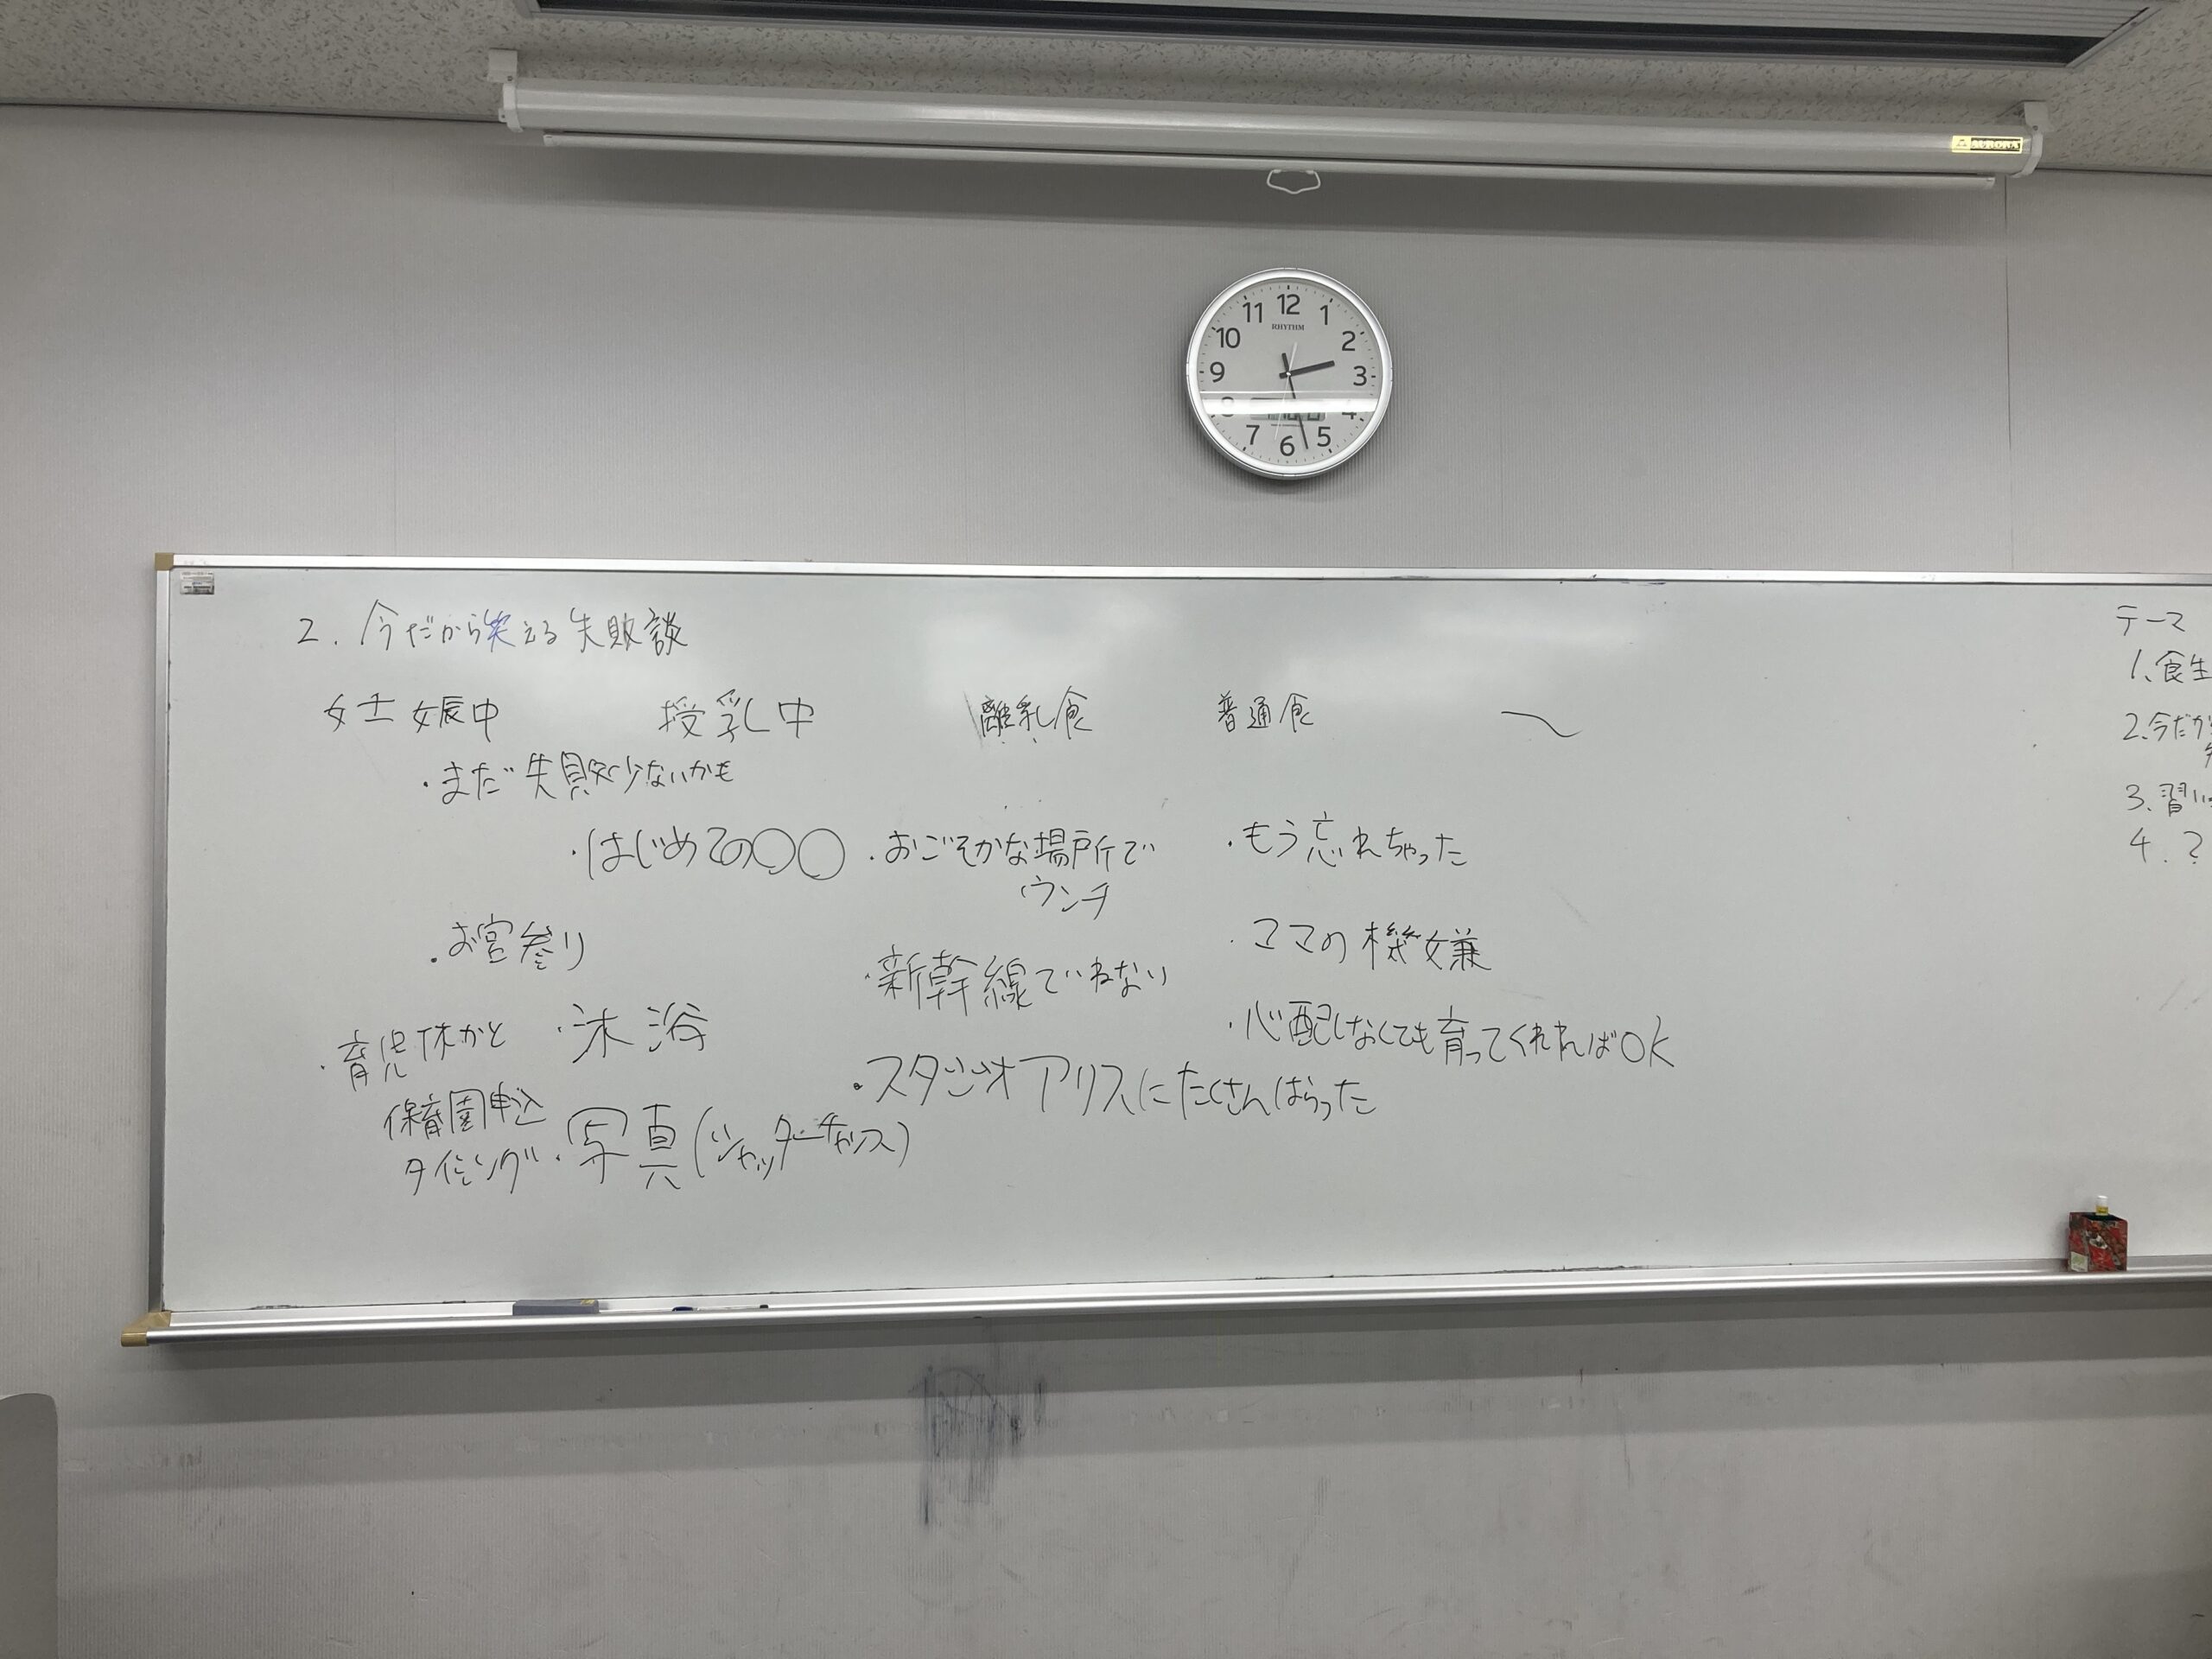 AURORA
11 12 1
RHYTHM
10 2
9 3
8 4
7 6 5
2. 今だから笑える失敗談
妊娠中 授乳中 離乳食 普通食 〜
・まだ失敗少ないかも
・はじめての〇〇
・お宮参り
・育児休かと
保育園申込
タイミング
・沐浴
・写真(シャッターチャンス)
・おごそかな場所で
ウンチ
・新幹線でねない
・スタジオアリスにたくさんはらった
・もう忘れちゃった
・ママの機嫌
・心配しなくても育ってくれればOK
テーマ
1、食生
2、今だか
3、習い
4.?